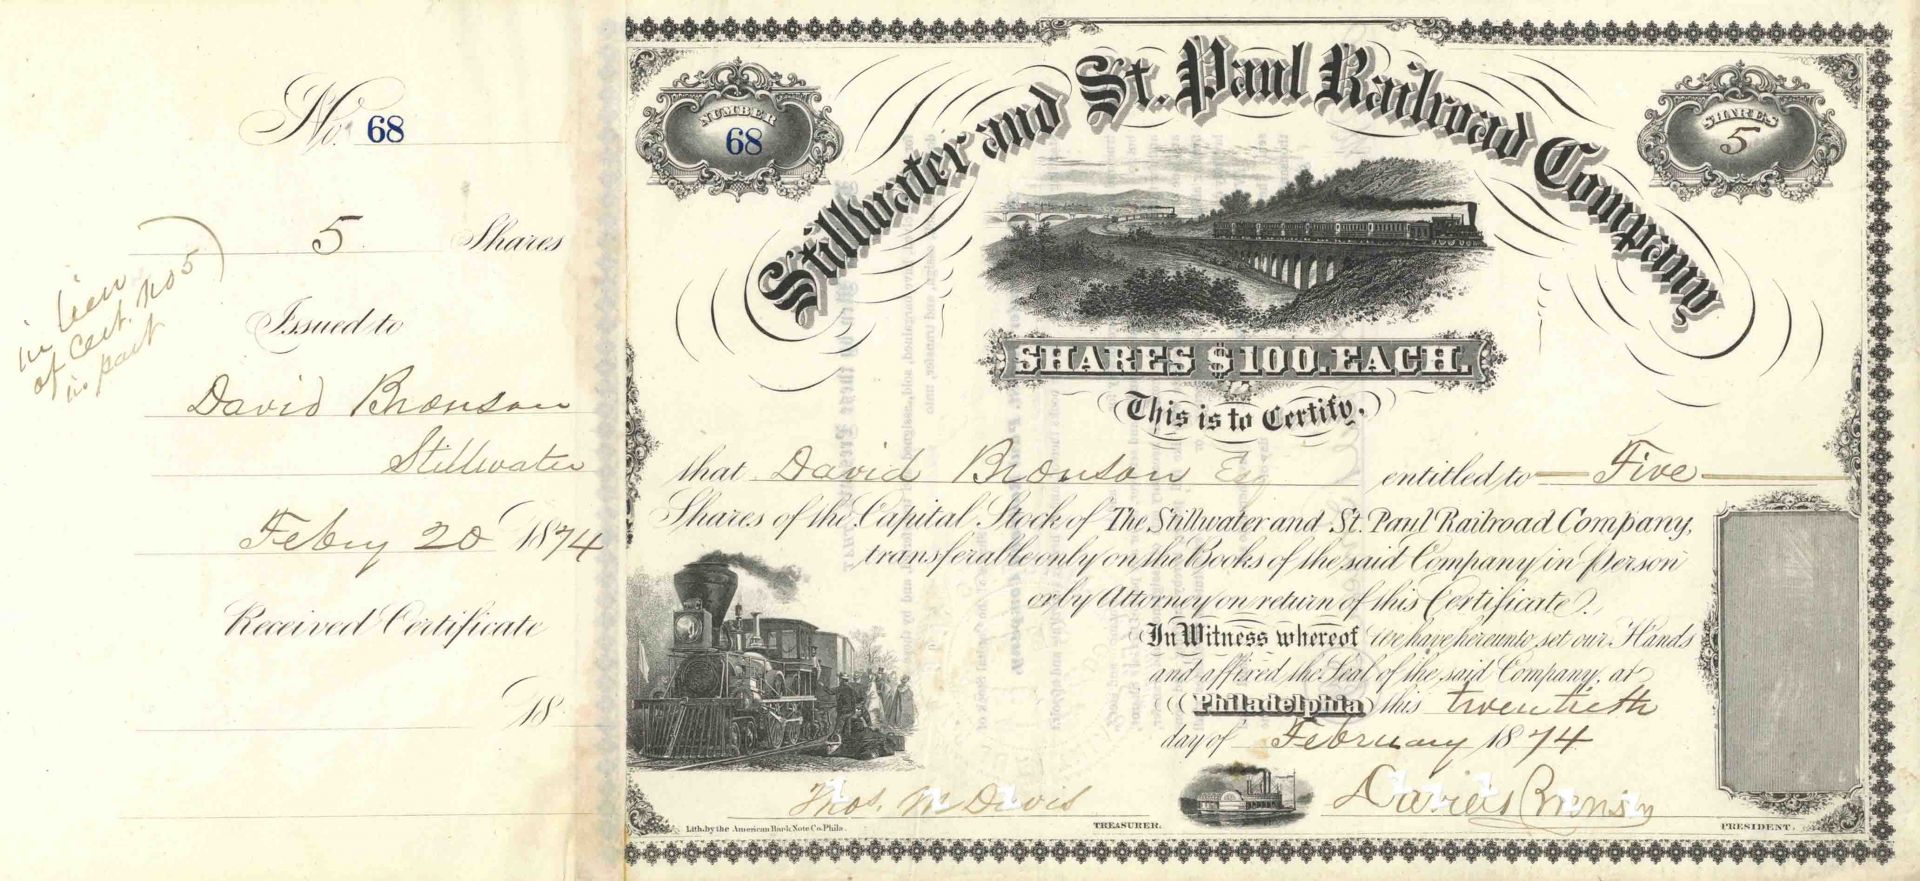 No. 68
5 Shares
in lieu
of Cert. No 5
in part
Issued to
David Bronson
Stillwater
Febry 20 1874
Received Certificate
18
NUMBER
68
Stillwater and St. Paul Railroad Company
SHARES
5
SHARES $100. EACH.
This is to Certify,
that David Bronson Esq entitled to Five
Shares of the Capital Stock of The Stillwater and St. Paul Railroad Company,
transferable only on the Books of the said Company in Person
or by Attorney on return of this Certificate.
In Witness whereof We have hereunto set our Hands
and affixed the Seal of the said Company, at
Philadelphia this twentieth
day of February 1874
Thos. M Davis
TREASURER.
David Bronson
PRESIDENT.
Lith. by the American Bank Note Co. Phila.